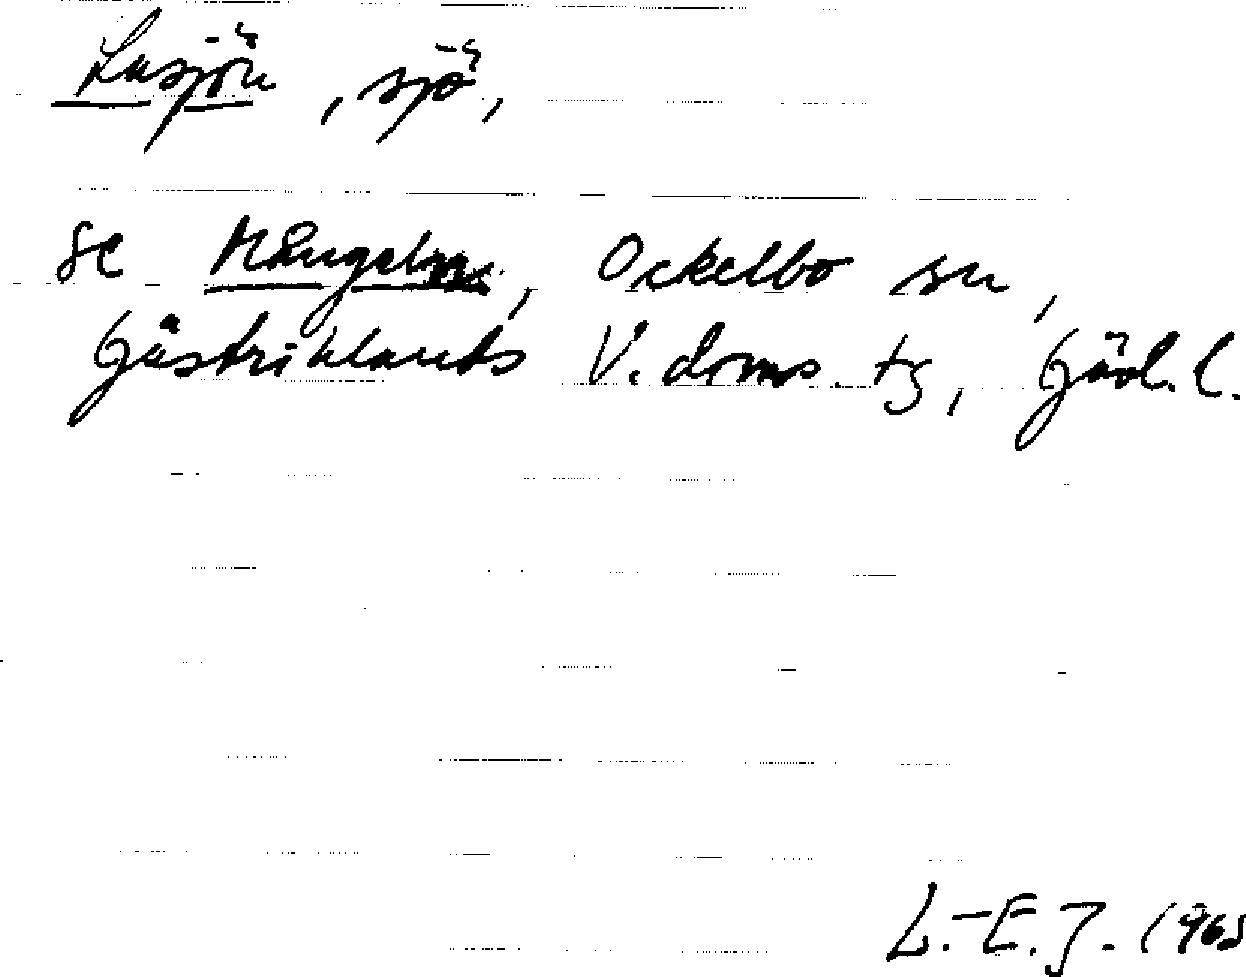 Lusjön, sjö,
se Mången, Ockelbo sn,
Gästriklands V. doms. tg, Gävl. l.
L.-E. J. 1965